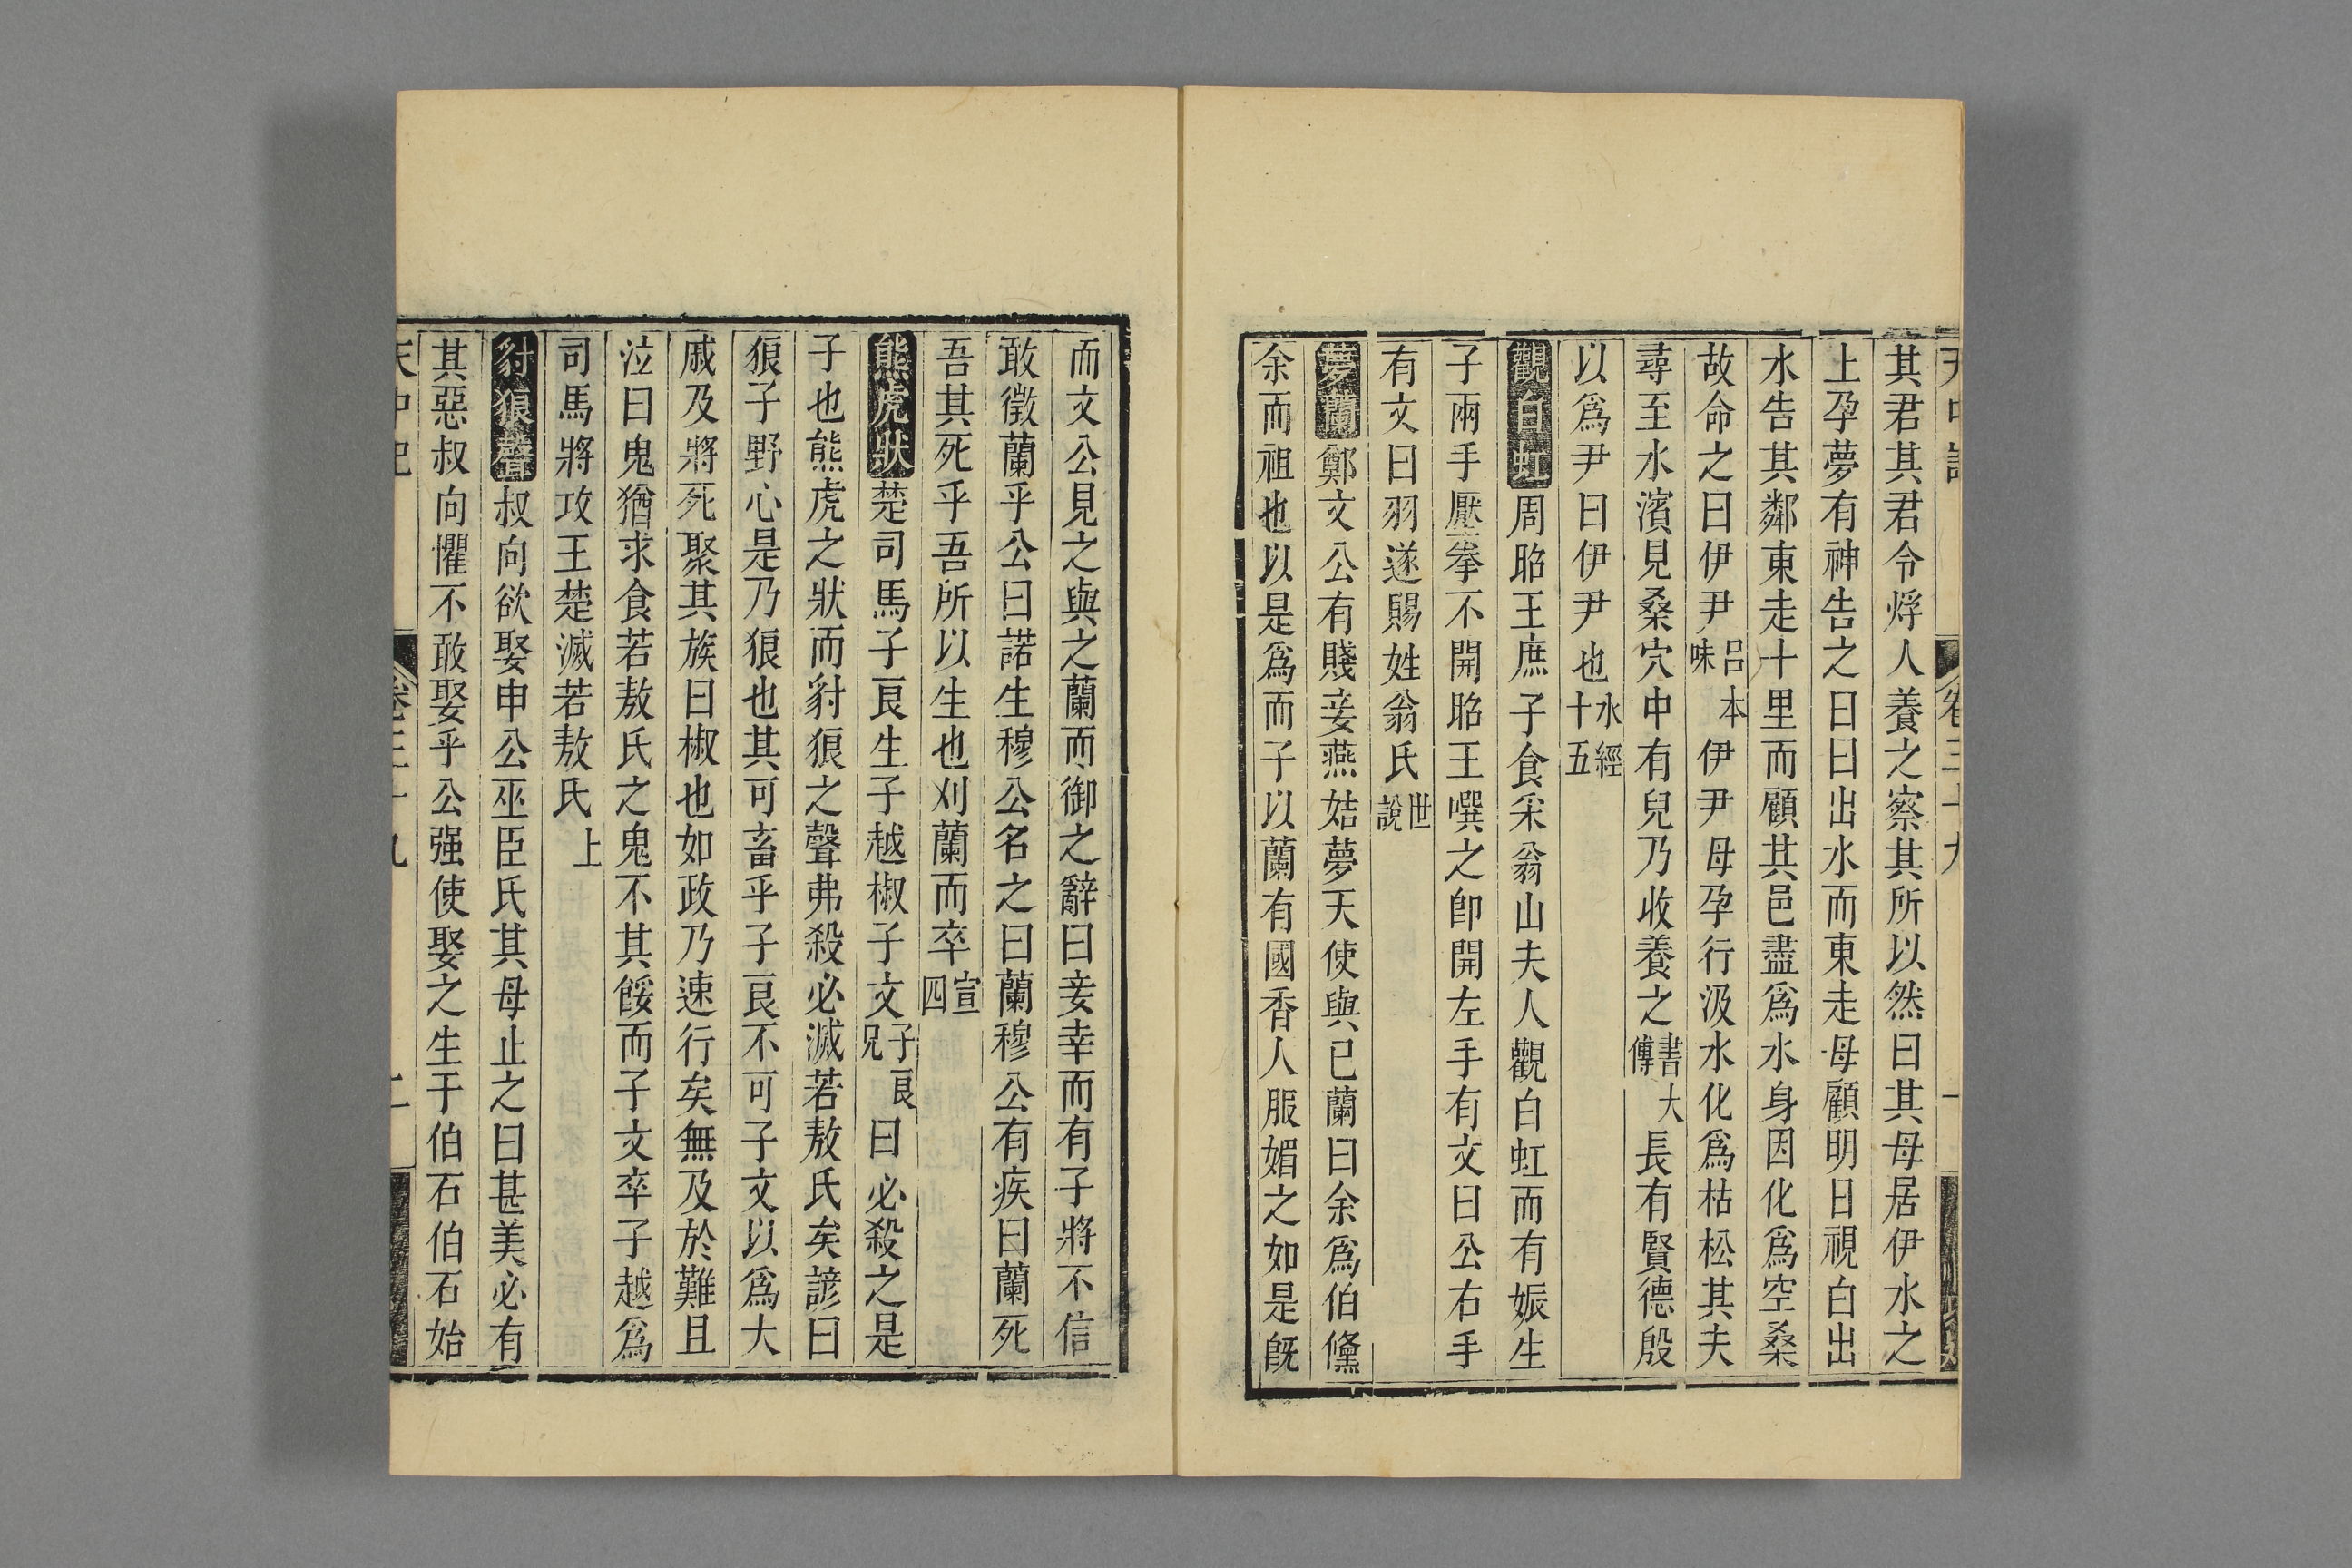 其君其君令烰人養之察其所以然曰其母居伊水之
上孕夢有神告之曰臼出水而東走母顧明日視臼出
水告其鄰東走十里而顧其邑盡爲水身因化爲空桑
故命之曰伊尹呂本味伊尹母孕行汲水化爲枯松其夫
尋至水濱見桑穴中有兒乃收養之書大傳長有賢德殷
以爲尹曰伊尹也水經十五
觀白虹周昭王庶子食采翁山夫人觀白虹而有娠生
子兩手壓拳不開昭王噀之卽開左手有文曰公右手
有文曰羽遂賜姓翁氏世說
夢蘭鄭文公有賤妾燕姞夢天使與已蘭曰余爲伯鯈
余而祖也以是爲而子以蘭有國香人服媚之如是旣
而文公見之與之蘭而御之辭曰妾幸而有子將不信
敢徵蘭乎公曰諾生穆公名之曰蘭穆公有疾曰蘭死
吾其死乎吾所以生也刈蘭而卒宣四
熊虎狀楚司馬子良生子越椒子文子良兄曰必殺之是
子也熊虎之狀而豺狼之聲弗殺必滅若敖氏矣諺曰
狼子野心是乃狼也其可畜乎子良不可子文以爲大
慼及將死聚其族曰椒也如政乃速行矣無及於難且
泣曰鬼猶求食若敖氏之鬼不其餒而子文卒子越爲
司馬將攻王楚滅若敖氏上
豺狼聲叔向欲娶申公巫臣氏其母止之曰甚美必有
其惡叔向懼不敢娶乎公强使娶之生于伯石伯石始